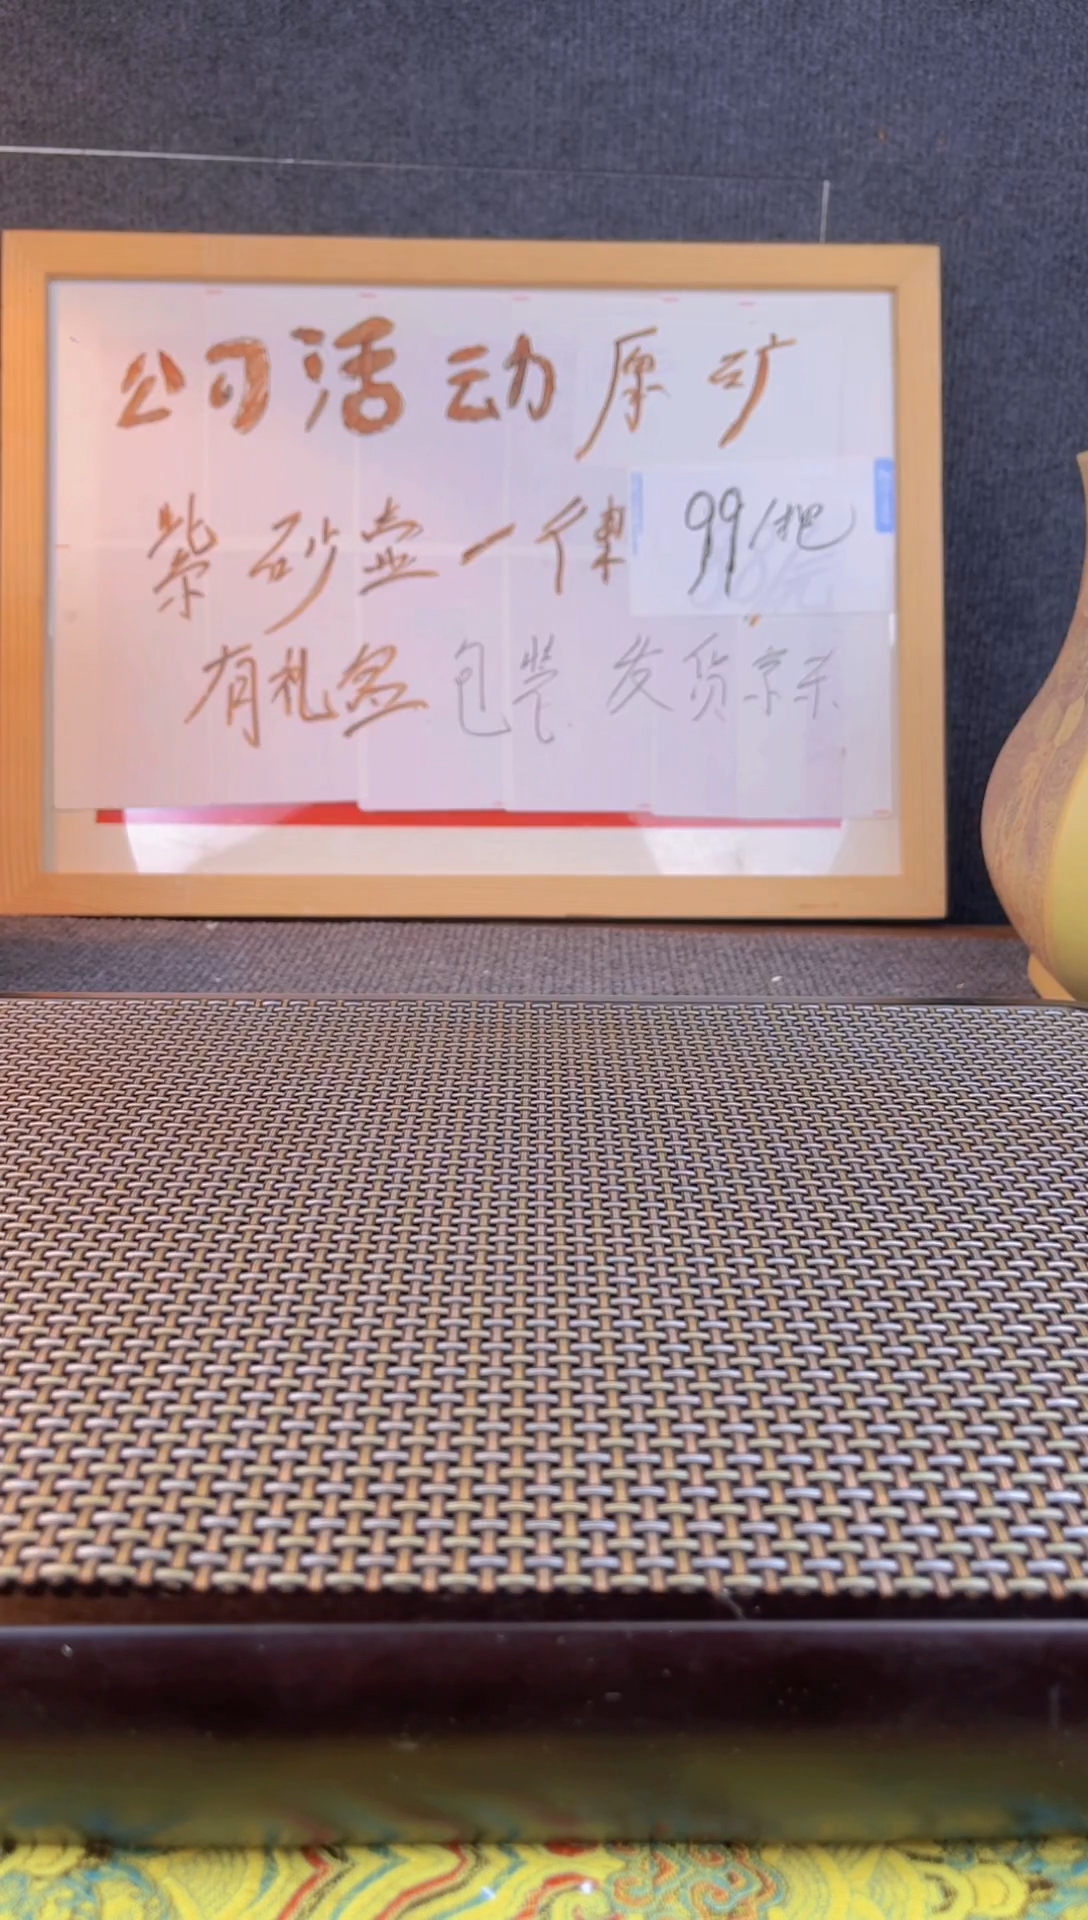 公司活动原矿
紫砂壶一律 99/把
有礼盒包装 发货京东